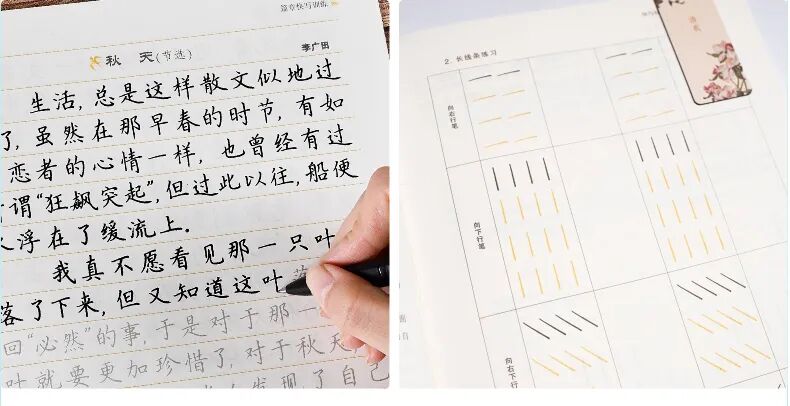 篇章快写训练
秋 天(节选)
李广田
生活,总是这样散文似地过
了,虽然在那早春的时节,有如
恋者的心情一样,也曾经有过
谓“狂飙突起”,但过此以往,船便
浮在了缓流上.
我真不愿看见那一只叶
落了下来,但又知道这叶
回“必然”的事,于是对于那一
叶就要更加珍惜了,对于秋天
发现了自己
2. 长线条练习
向右行笔
向下行笔
向右下行